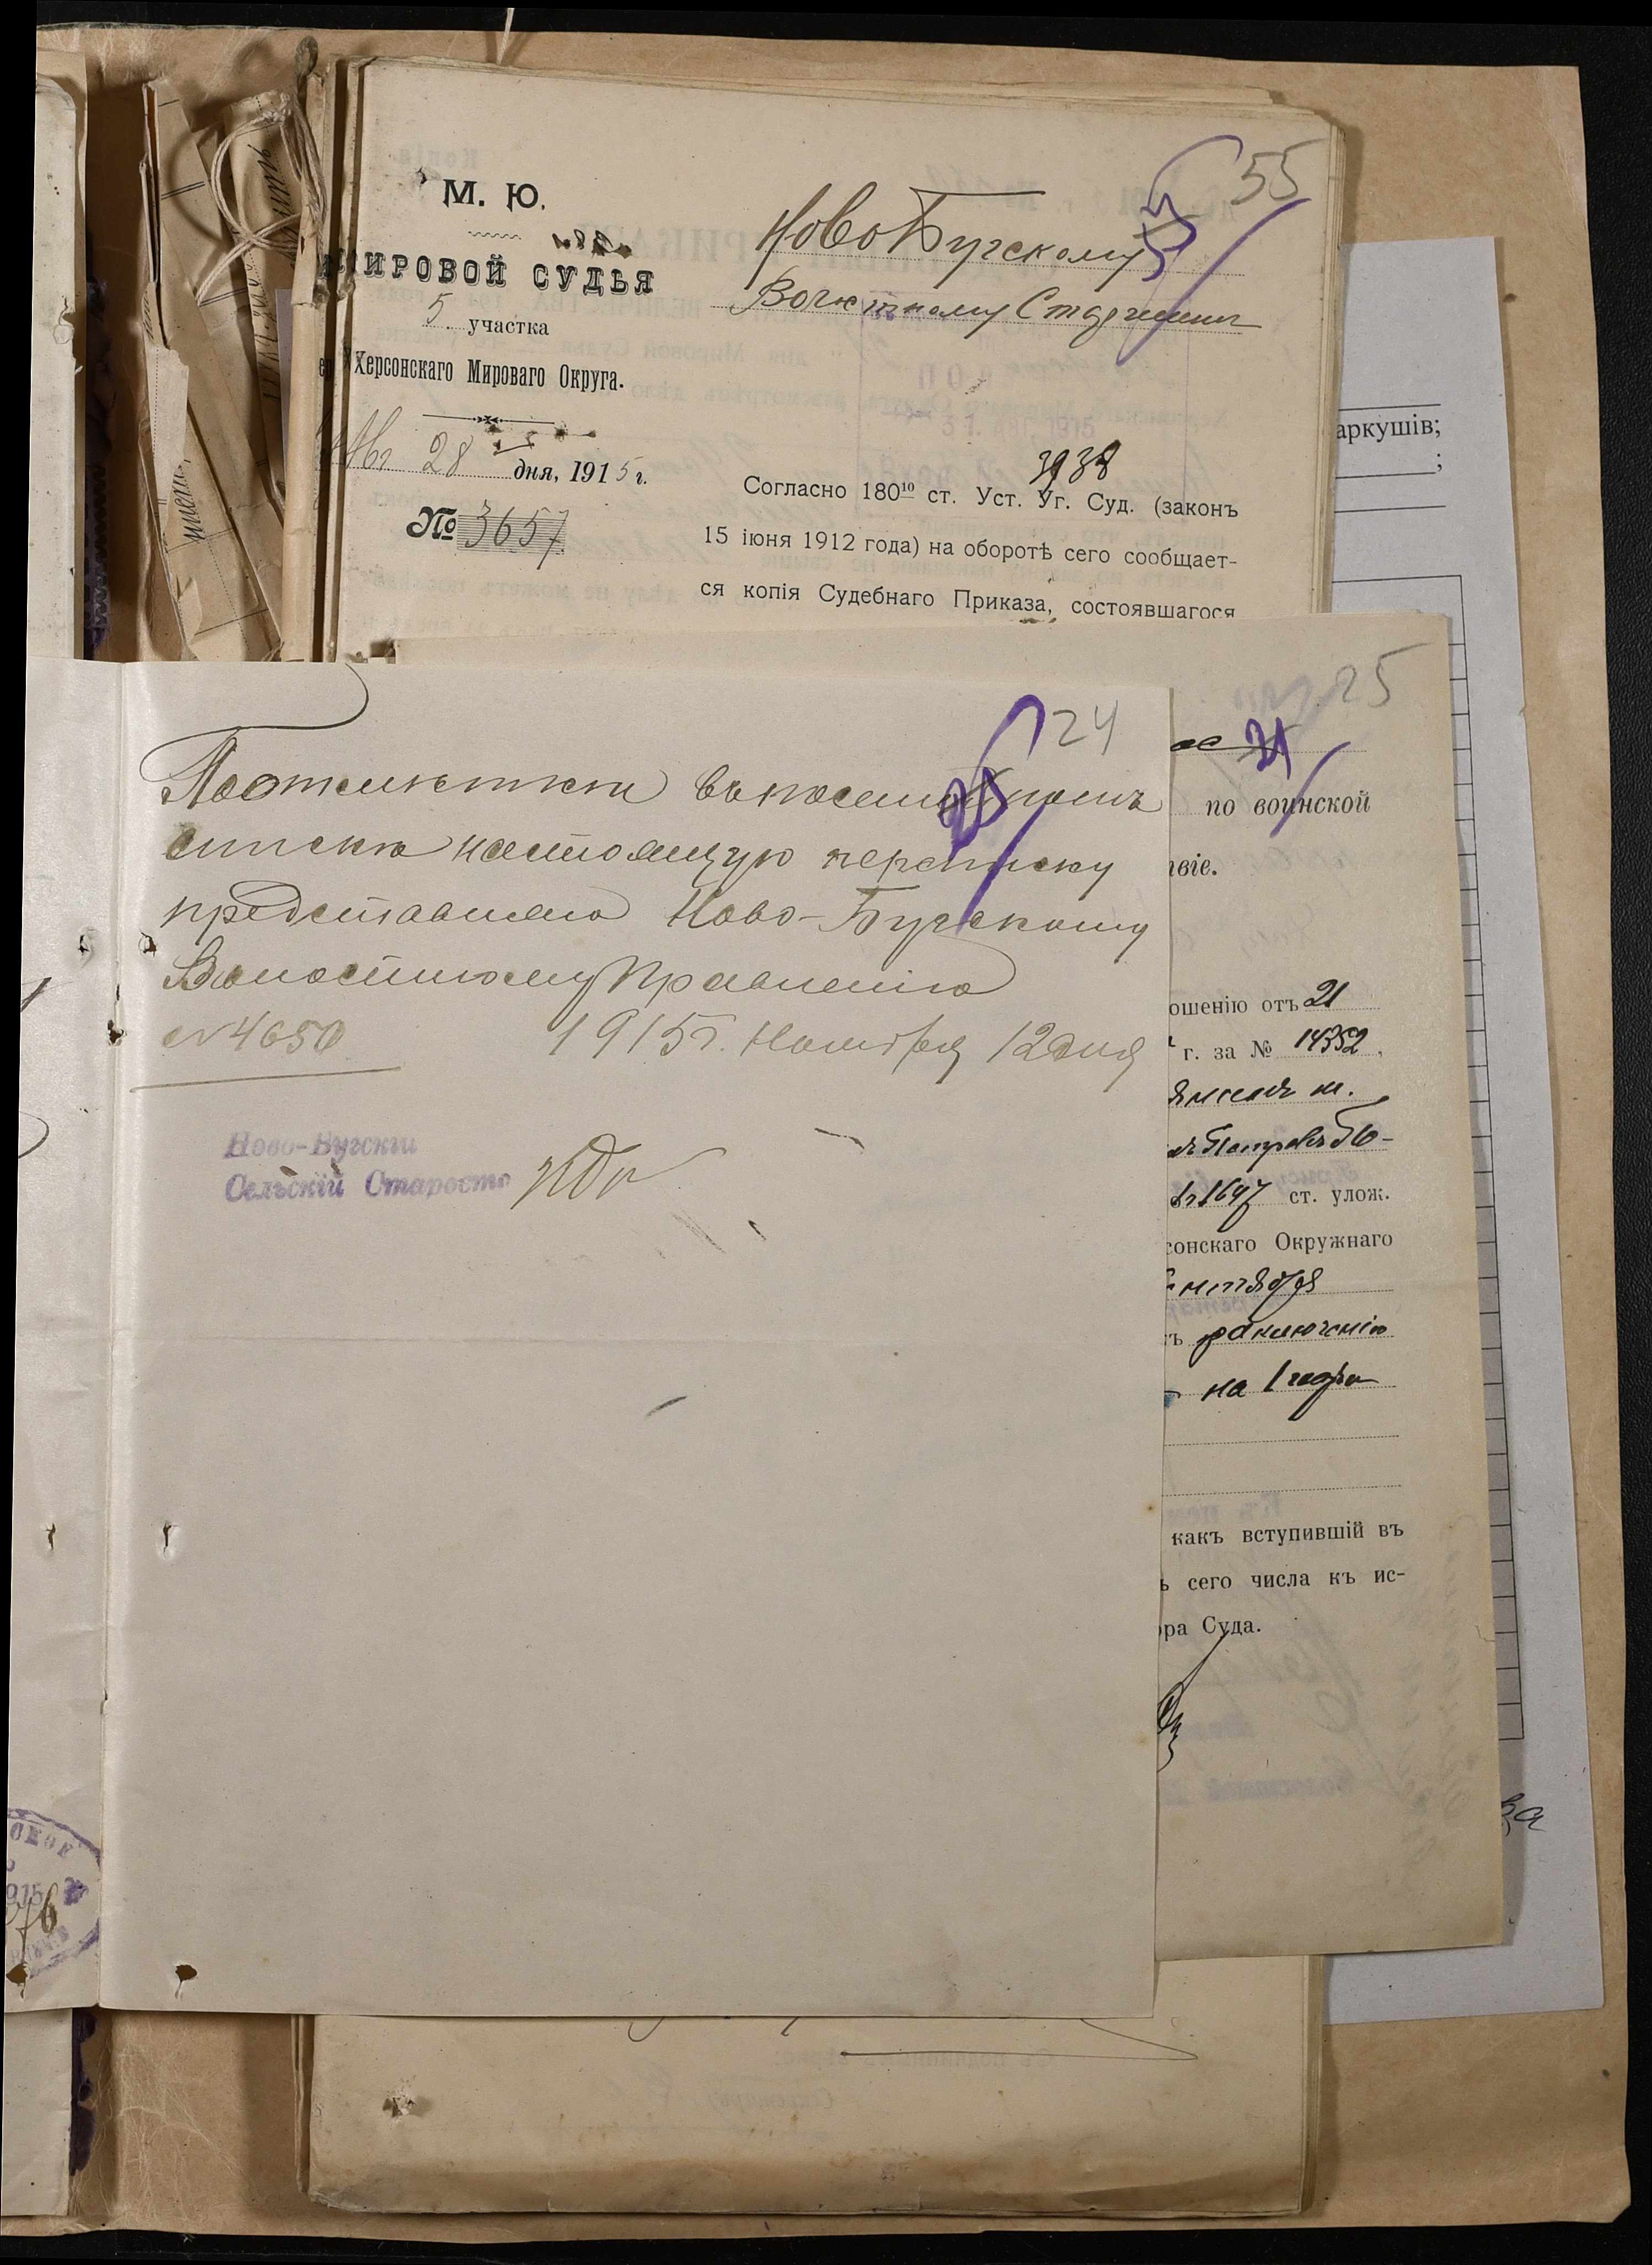 М. Ю.
МИРОВОЙ СУДЬЯ
5. участка
Херсонскаго Мироваго Округа.
Авг 28 дня, 1915 г.
№ 3657
55
НовоБугскому
Волостному Старшине
3938
Согласно 180¹⁰ ст. Уст. Уг. Суд. (законъ
15 іюня 1912 года) на оборотѣ сего сообщает-
ся копія Судебнаго Приказа, состоявшагося
24
По отметки въ посемейномъ
списке настоящую переписку
представляю Ново-Бугскому
Волостному Правленію
№ 4650 1915 г. Ноября 12 дня
Ново-Бугскій
Сельскій Староста
25
21
по воинской
віе.
ошенію отъ 21
г. за № 14352,
1647 ст. улож.
сонскаго Окружнаго
заключенію
на 1 годъ
какъ вступившій въ
ь сего числа къ ис-
ора Суда.
аркушів;
;
ва